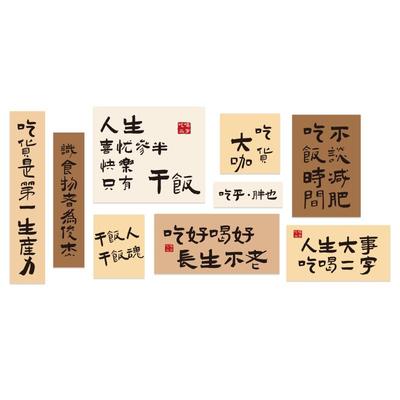 吃貨是第一生產力
識食物者為俊杰
人生
喜忧參半
快樂
只有干飯
吃貨
大咖
吃乎·胖也
不談減肥
吃飯時間
干飯人
干飯魂
吃好喝好
長生不老
人生大事
吃喝二字